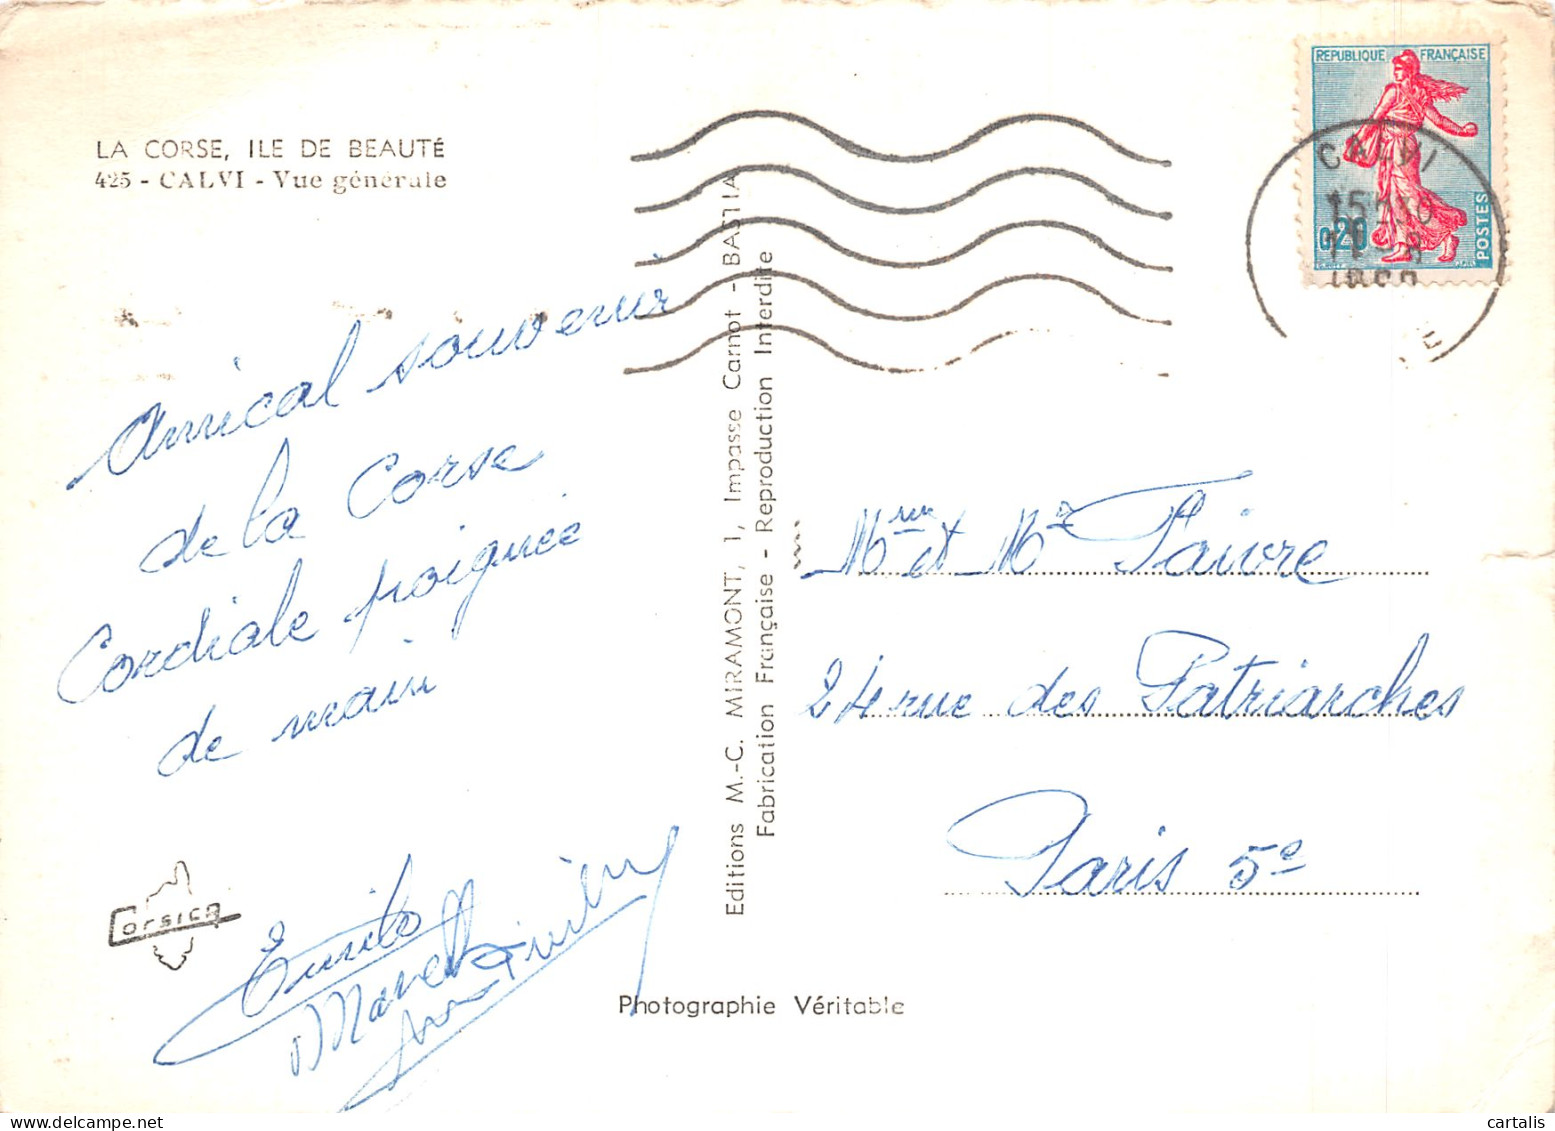 LA CORSE, ILE DE BEAUTÉ
425 - CALVI - Vue générale
REPUBLIQUE FRANÇAISE
0,20
POSTES
CALVI
15H30
Amical souvenir
de la Corse
Cordiale poignée
de main
Corsica
Emile
Marcel
Editions M.-C. MIRAMONT, 1, Impasse Carnot - BASTIA
Fabrication Française - Reproduction Interdite
Mme et Mr Faivre
24 rue des Patriarches
Paris 5e
Photographie Véritable
cartalis